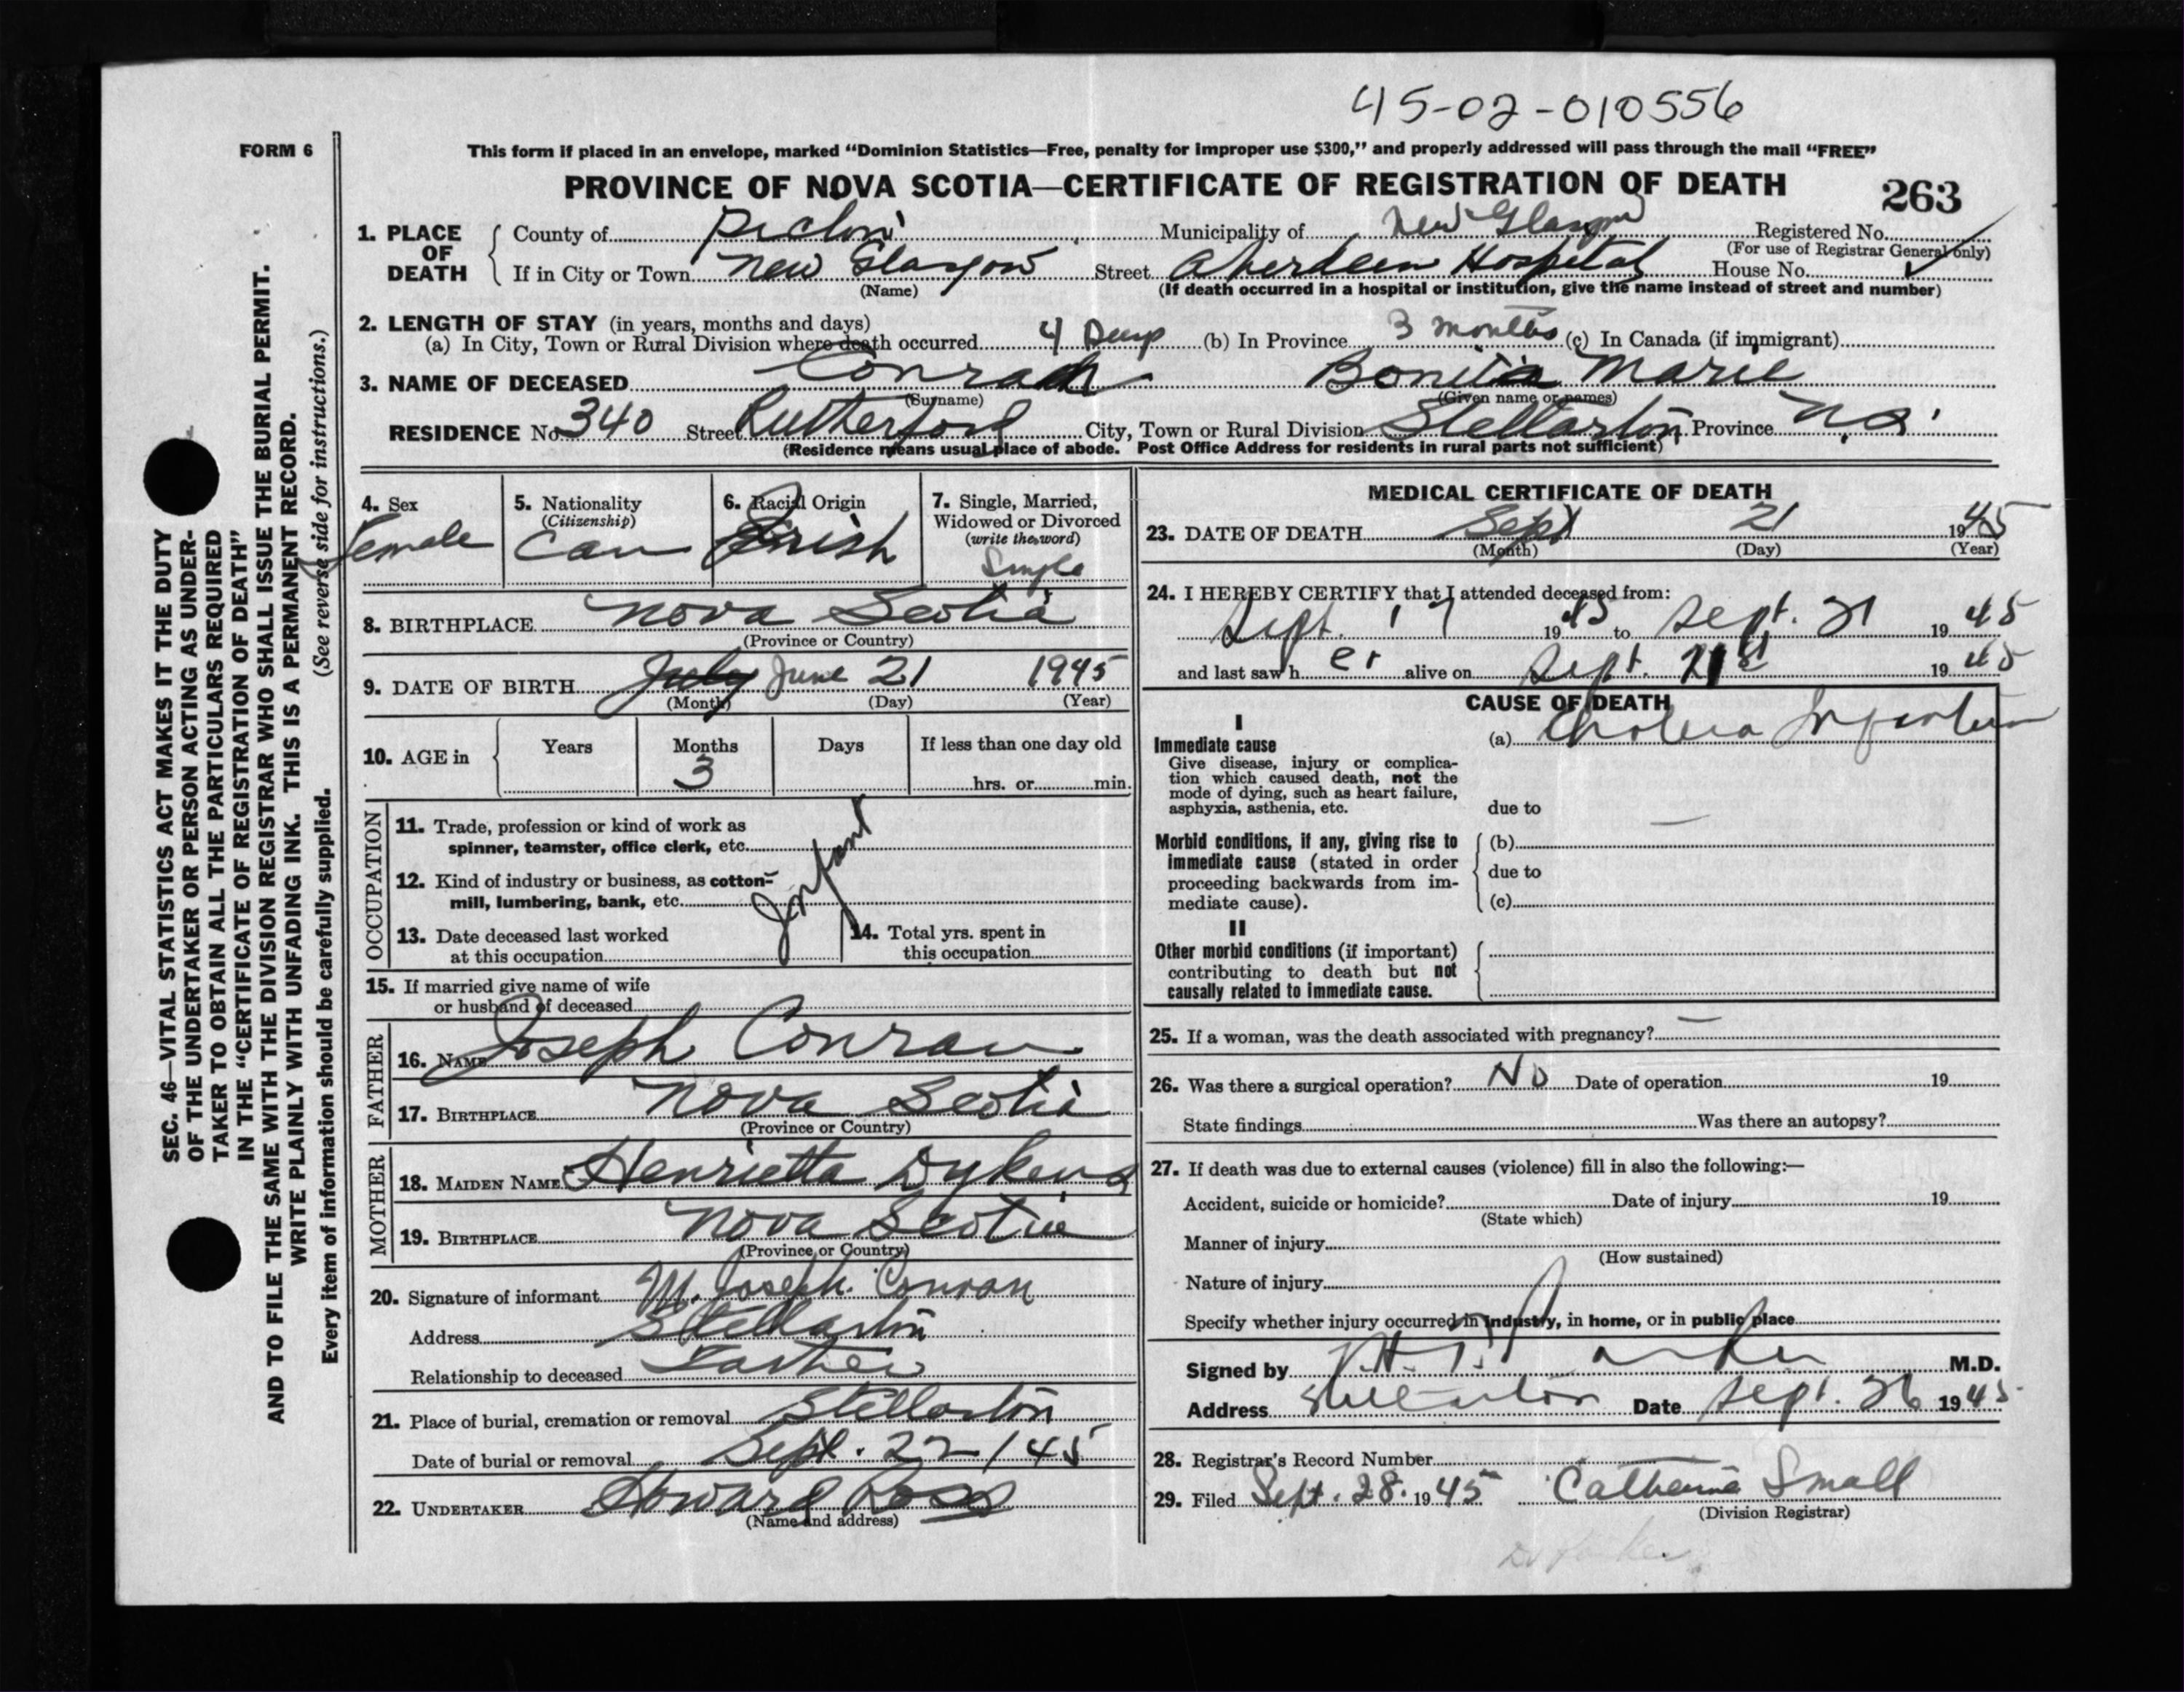 45-02-010556
FORM 6
This form if placed in an envelope, marked “Dominion Statistics—Free, penalty for improper use $300,” and properly addressed will pass through the mail “FREE”
PROVINCE OF NOVA SCOTIA—CERTIFICATE OF REGISTRATION OF DEATH 263
1. PLACE OF DEATH County of Pictou Municipality of New Glasgow Registered No.
(For use of Registrar General only)
If in City or Town New Glasgow Street Aberdeen Hospital House No.
(Name) (If death occurred in a hospital or institution, give the name instead of street and number)
2. LENGTH OF STAY (in years, months and days)
(a) In City, Town or Rural Division where death occurred 4 Days (b) In Province 3 months (c) In Canada (if immigrant)
3. NAME OF DECEASED Bonita Marie
(Surname) (Given name or names)
RESIDENCE No. 340 Street Rutherford City, Town or Rural Division Stellarton Province N.S.
(Residence means usual place of abode. Post Office Address for residents in rural parts not sufficient)
4. Sex Female
5. Nationality (Citizenship) Can
6. Racial Origin Irish
7. Single, Married, Widowed or Divorced (write the word) Single
8. BIRTHPLACE Nova Scotia
(Province or Country)
9. DATE OF BIRTH July June 21 1945
(Month) (Day) (Year)
10. AGE in Years Months Days If less than one day old
3 hrs. or min.
OCCUPATION
11. Trade, profession or kind of work as
spinner, teamster, office clerk, etc.
Infant
12. Kind of industry or business, as cotton-
mill, lumbering, bank, etc.
13. Date deceased last worked
at this occupation
14. Total yrs. spent in
this occupation
15. If married give name of wife
or husband of deceased
FATHER
16. NAME Joseph Conran
17. BIRTHPLACE Nova Scotia
(Province or Country)
MOTHER
18. MAIDEN NAME Henrietta Dykens
19. BIRTHPLACE Nova Scotia
(Province or Country)
20. Signature of informant M. Joseph Conran
Address Stellarton
Relationship to deceased Father
21. Place of burial, cremation or removal Stellarton
Date of burial or removal Sept. 22/45
22. UNDERTAKER Howard Ross
(Name and address)
MEDICAL CERTIFICATE OF DEATH
23. DATE OF DEATH Sept 21 1945
(Month) (Day) (Year)
24. I HEREBY CERTIFY that I attended deceased from:
Sept. 17 1945 to Sept. 21 1945
and last saw her alive on Sept. 1945
CAUSE OF DEATH
I
Immediate cause
Give disease, injury or complica-
tion which caused death, not the
mode of dying, such as heart failure,
asphyxia, asthenia, etc.
(a) Cholera Infantum
due to
Morbid conditions, if any, giving rise to
immediate cause (stated in order
proceeding backwards from im-
mediate cause).
(b)
due to
(c)
II
Other morbid conditions (if important)
contributing to death but not
causally related to immediate cause.
25. If a woman, was the death associated with pregnancy? —
26. Was there a surgical operation? No Date of operation 19
State findings Was there an autopsy?
27. If death was due to external causes (violence) fill in also the following:—
Accident, suicide or homicide? Date of injury 19
(State which)
Manner of injury
(How sustained)
Nature of injury
Specify whether injury occurred in industry, in home, or in public place
Signed by M.D.
Address Stellarton Date Sept. 26 1945
28. Registrar's Record Number
29. Filed Sept. 28. 1945 Catherine Small
(Division Registrar)
SEC. 46—VITAL STATISTICS ACT MAKES IT THE DUTY
OF THE UNDERTAKER OR PERSON ACTING AS UNDER-
TAKER TO OBTAIN ALL THE PARTICULARS REQUIRED
IN THE “CERTIFICATE OF REGISTRATION OF DEATH”
AND TO FILE THE SAME WITH THE DIVISION REGISTRAR WHO SHALL ISSUE THE BURIAL PERMIT.
WRITE PLAINLY WITH UNFADING INK. THIS IS A PERMANENT RECORD.
Every item of information should be carefully supplied. (See reverse side for instructions.)